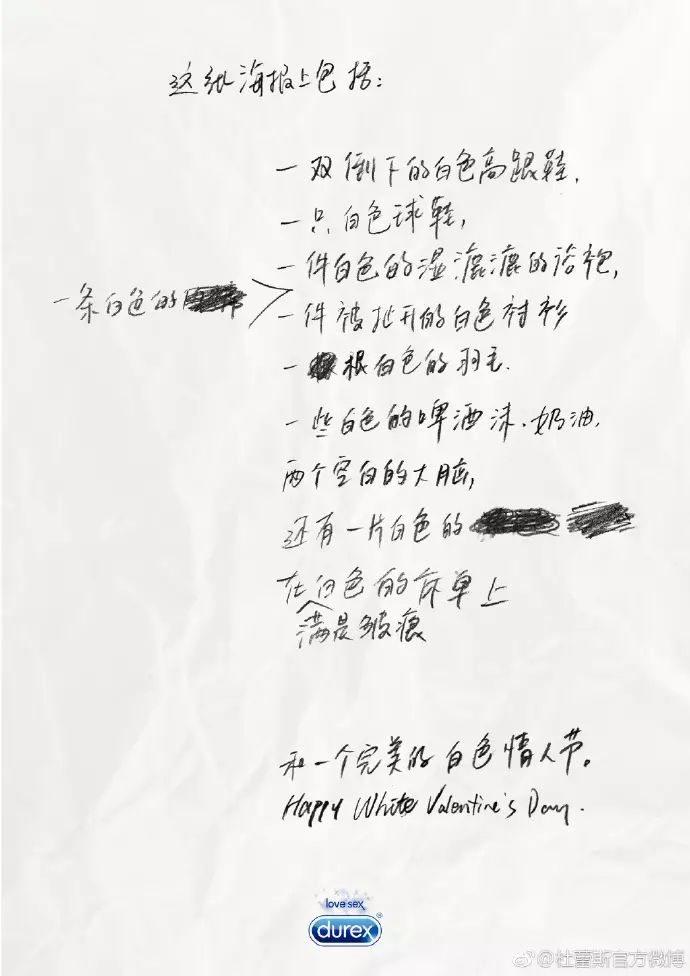 这纸海报上包括：
一双倒下的白色高跟鞋，
一只白色球鞋，
一件白色的湿漉漉的浴袍，
一条白色的
一件被扯开的白色衬衫
一根白色的羽毛.
一些白色的啤酒沫、奶油，
两个空白的大脑，
还有一片白色的
在白色的床单上
满是皱痕
和一个完美的白色情人节。
Happy White Valentine's Day.
love sex
durex
@杜蕾斯官方微博